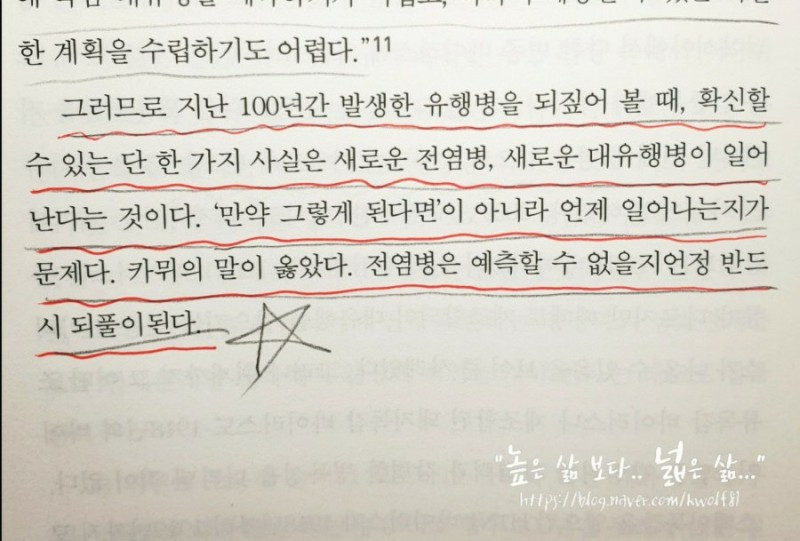 한 계획을 수립하기도 어렵다.”11
그러므로 지난 100년간 발생한 유행병을 되짚어 볼 때, 확신할
수 있는 단 한 가지 사실은 새로운 전염병, 새로운 대유행병이 일어
난다는 것이다. ‘만약 그렇게 된다면’이 아니라 언제 일어나는지가
문제다. 카뮈의 말이 옳았다. 전염병은 예측할 수 없을지언정 반드
시 되풀이된다.
"높은 삶 보다.. 넓은 삶..."
https://blog.naver.com/kwolf81